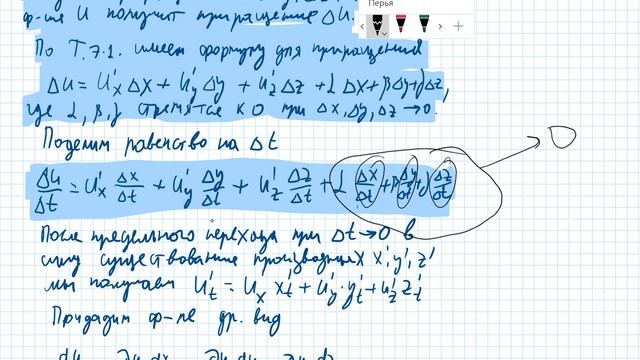 Перья
ф-ле U получит приращение ΔU.
По Т.7.1. имеем формулу для приращения
ΔU = U'x Δx + U'y Δy + U'z Δz + α Δx + β Δy + γ Δz,
где α, β, γ стремятся к 0 при Δx, Δy, Δz → 0.
Поделим равенство на Δt
ΔU/Δt = U'x Δx/Δt + U'y Δy/Δt + U'z Δz/Δt + α Δx/Δt + β Δy/Δt + γ Δz/Δt → 0
После предельного перехода при Δt → 0 в
силу существование производных x', y', z'
мы получаем U't = U'x x't + U'y · y't + U'z z't
Придадим ф-ле др. вид